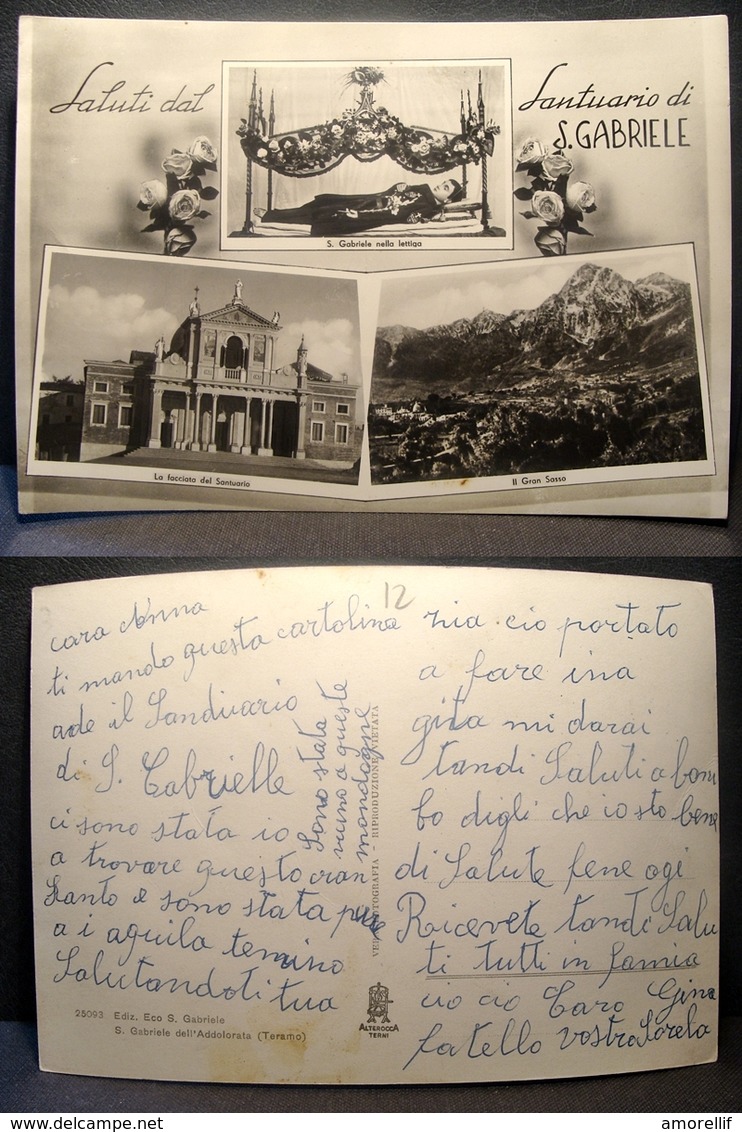 Saluti dal
Santuario di
S. GABRIELE
S. Gabriele nella lettiga
La facciata del Santuario
Il Gran Sasso
12
cara Anna
ti mando questa cartolina
ade il Sanduario
di S. Cabrielle
ci sono stata io
a trovare questo cran
Santo e sono stata pure
a i aquila temino
Salutandoti tua
Sono stata
vicino a queste
mondagne
VERA FOTOGRAFIA - RIPRODUZIONE VIETATA
zia cio portato
a fare ina
gita mi darai
tandi Saluti a bom
bo digli che io sto bene
di Salute fene ogi
Ricevete tandi Salu
ti tutti in famia
cio cio Caro Gina
fatello vostra Sorela
25093 Ediz. Eco S. Gabriele
S. Gabriele dell'Addolorata (Teramo)
ALTEROCCA
TERNI
amorellif